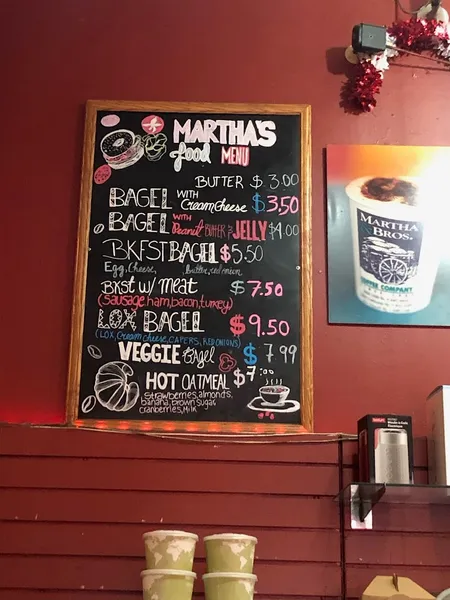 MARTHA'S
food MENU
BUTTER $3.00
BAGEL WITH CreamCheese $3.50
BAGEL WITH Peanut BUTTER JELLY $4.00
BKFST BAGEL $6.50
Egg, Cheese, butter, red onion
BKST w/ meat $7.50
(Sausage, ham, bacon, turkey)
LOX BAGEL $9.50
(LOX, Cream cheese, CAPERS, RED ONIONS)
VEGGIE Bagel $7.99
HOT OATMEAL $7.00
Strawberries, almonds,
banana, brown sugar
cranberries, Milk
MARTHA
& BROS.
COFFEE COMPANY